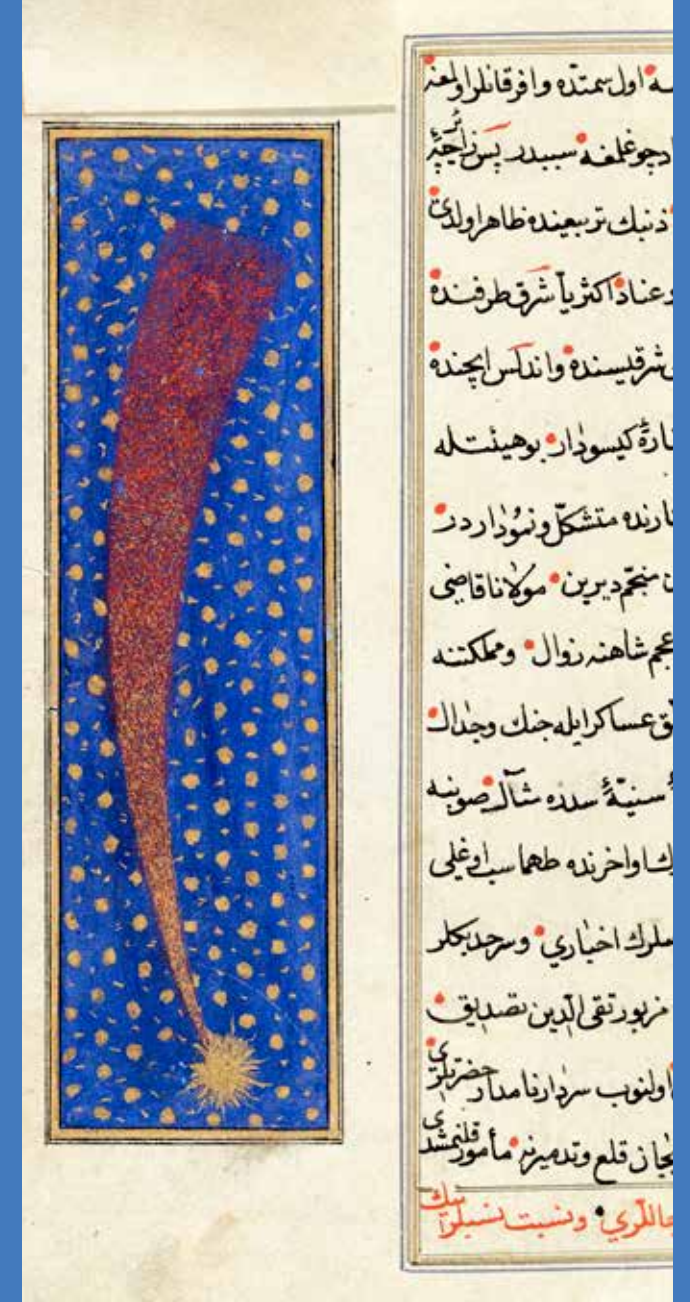 اول سمتده وافر قانلر اولمغه
چوغلمغه سببدر پس
ذنبك تربيعنده ظاهر اولدى
وعناد اكثريا شرق طرفنده
شرقيسنده واندلس ايچنده
كيسودار بوهيئتله
متشكّل ونمودار در
منجّم ديرين مولانا قاضى
عجم شاهنه زوال ومملكتنه
عساكر ايله جنك وجدال
سنيّهٔ سدره مثال صوبنه
اواخرنده طهماسب اوغلى
اخبارى وسرحد بكلر
مزبور تقى الدّين تصديق
اولنوب سردار نامدار حضرتلرى
قلع وتدميرنه مأمور قلنمشدى
ونسبت